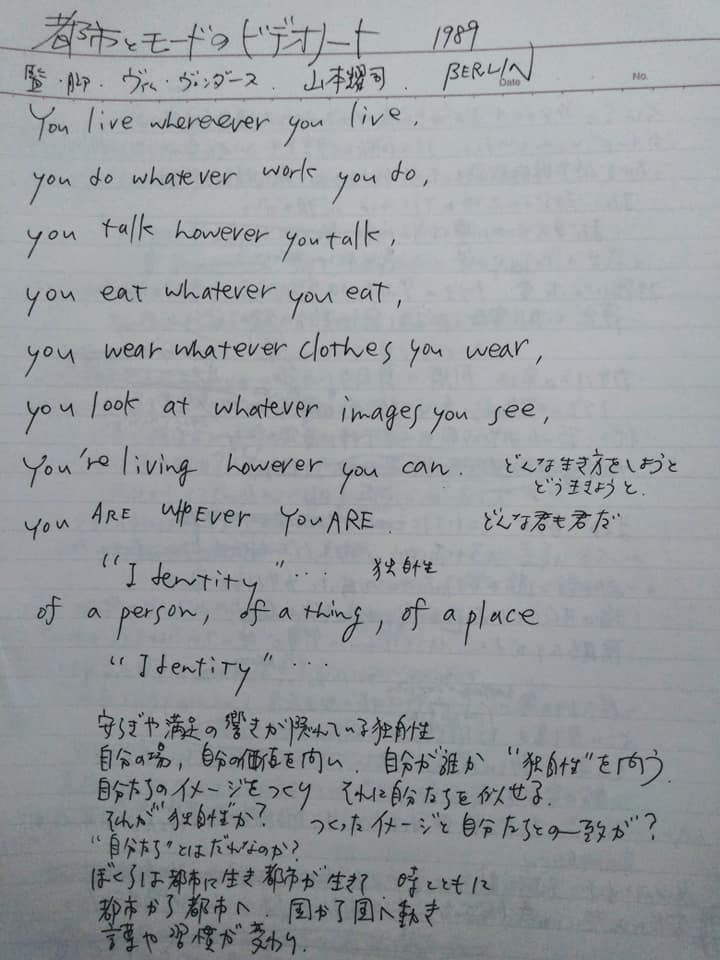 都市とモードのビデオノート 1989
監・脚. ヴィム・ヴェンダース. 山本耀司 BERLIN
Date No.
You live whereever you live,
you do whatever work you do,
you talk however you talk,
you eat whatever you eat,
you wear whatever clothes you wear,
you look at whatever images you see,
You're living however you can. どんな生き方をしようと
どう生きようと.
you ARE WHOEver YOU ARE. どんな君も君だ
"Identity"... 独自性
of a person, of a thing, of a place
"Identity"...
安らぎや満足の響きが隠れている独自性
自分の場, 自分の価値を問い. 自分が誰か "独自性"を問う.
自分たちのイメージをつくり それに自分たちを似せる.
それが"独自性"か? つくったイメージと自分たちとの一致が?
"自分たち"とはだれなのか?
ぼくらは都市に生き都市が生きて 時とともに
都市から都市へ. 国から国へ動き
言葉や習慣が変わり.